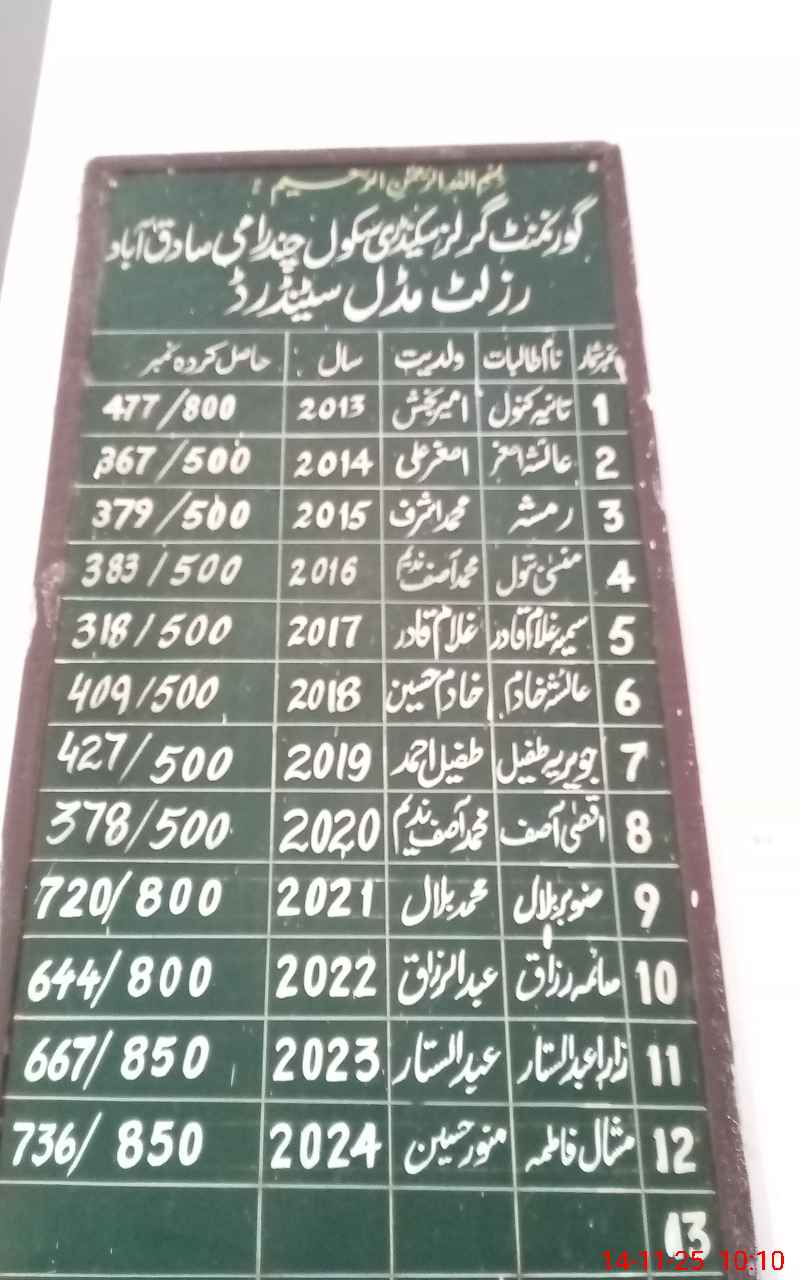 بسم اللہ الرحمٰن الرحیم
گورنمنٹ گرلز سیکنڈری سکول چندرامی صادق آباد
رزلٹ مڈل سٹینڈرڈ
نمبر شمار نام طالبات ولدیت سال حاصل کردہ نمبر
1 تانیہ کنول امیر بخش 2013 477/800
2 عائشہ اصغر اصغر علی 2014 367/500
3 رمشہ محمد اشرف 2015 379/500
4 محمد آصف ندیم 2016 383/500
5 سمیہ غلام قادر غلام قادر 2017 318/500
6 عائشہ خادم خادم حسین 2018 409/500
7 جویریہ طفیل طفیل احمد 2019 427/500
8 اقصٰی آصف محمد آصف ندیم 2020 378/500
9 صنوبر بلال محمد بلال 2021 720/800
10 صائمہ رزاق عبدالرزاق 2022 644/800
11 زارا عبدالستار عبدالستار 2023 667/850
12 مشال فاطمہ منور حسین 2024 736/850
13
14-11-25 10:10